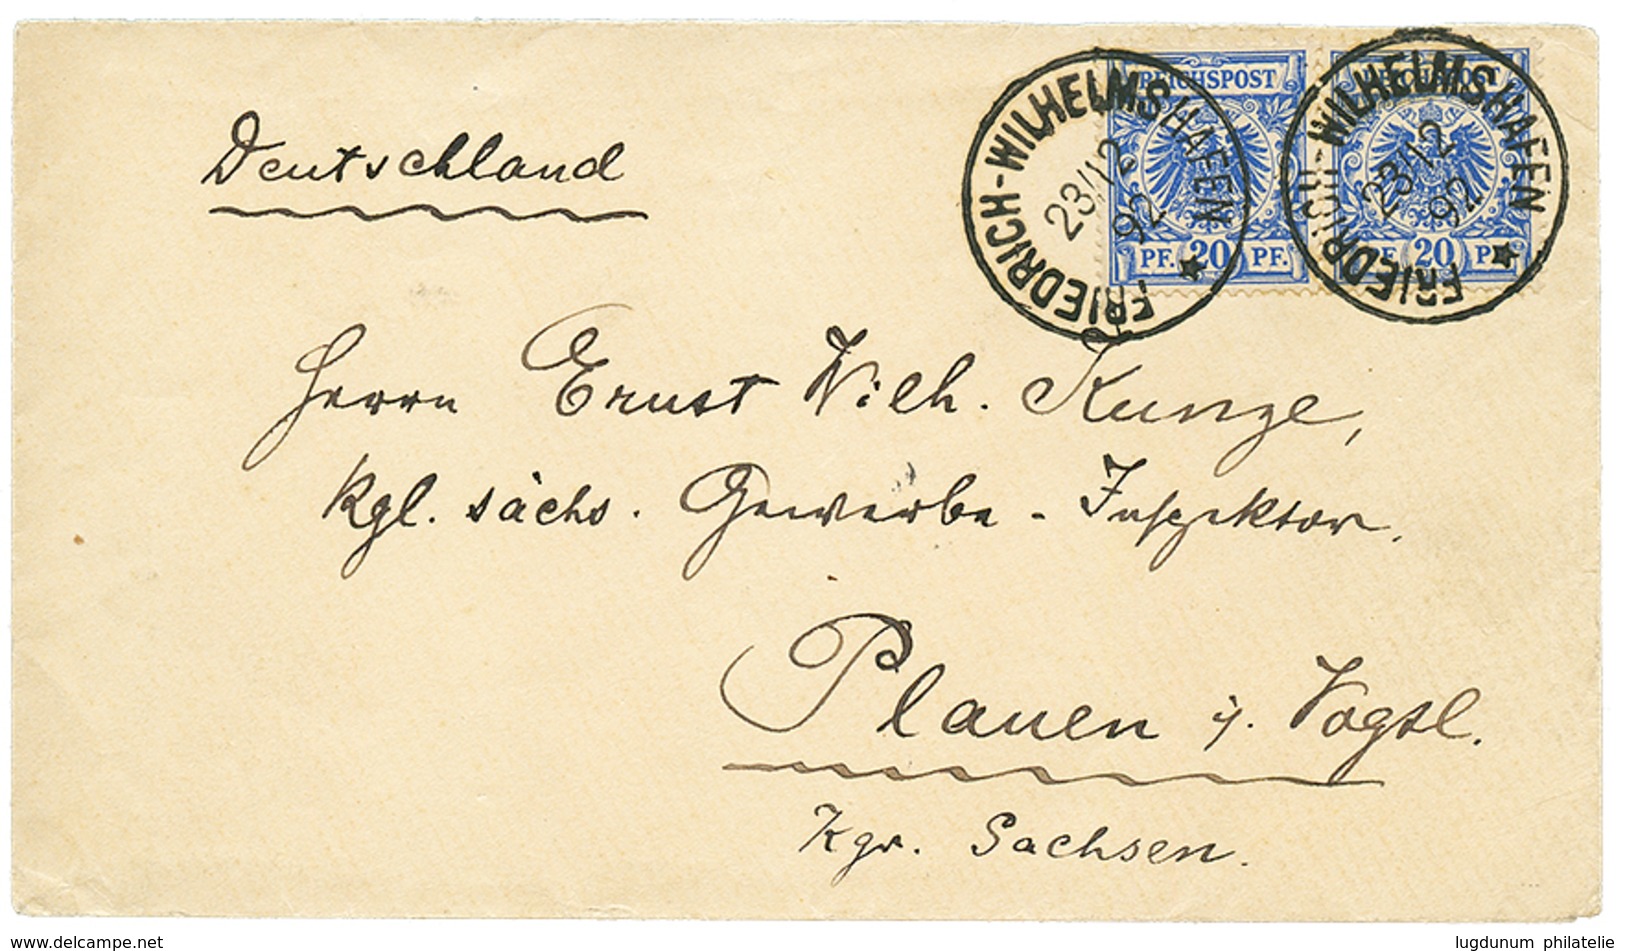 REICHSPOST
REICHSPOST
FRIEDRICH-WILHELMSHAFEN
23/12
92
FRIEDRICH-WILHELMSHAFEN
23/12
92
PF. 20 PF.
PF. 20 PF.
Deutschland
Herrn Ernst Wilh. Kunze,
Kgl. sächs. Gewerbe-Inspektor,
Plauen i. Vogtl.
Kgr. Sachsen.
www.delcampe.net
lugdunum philatelie